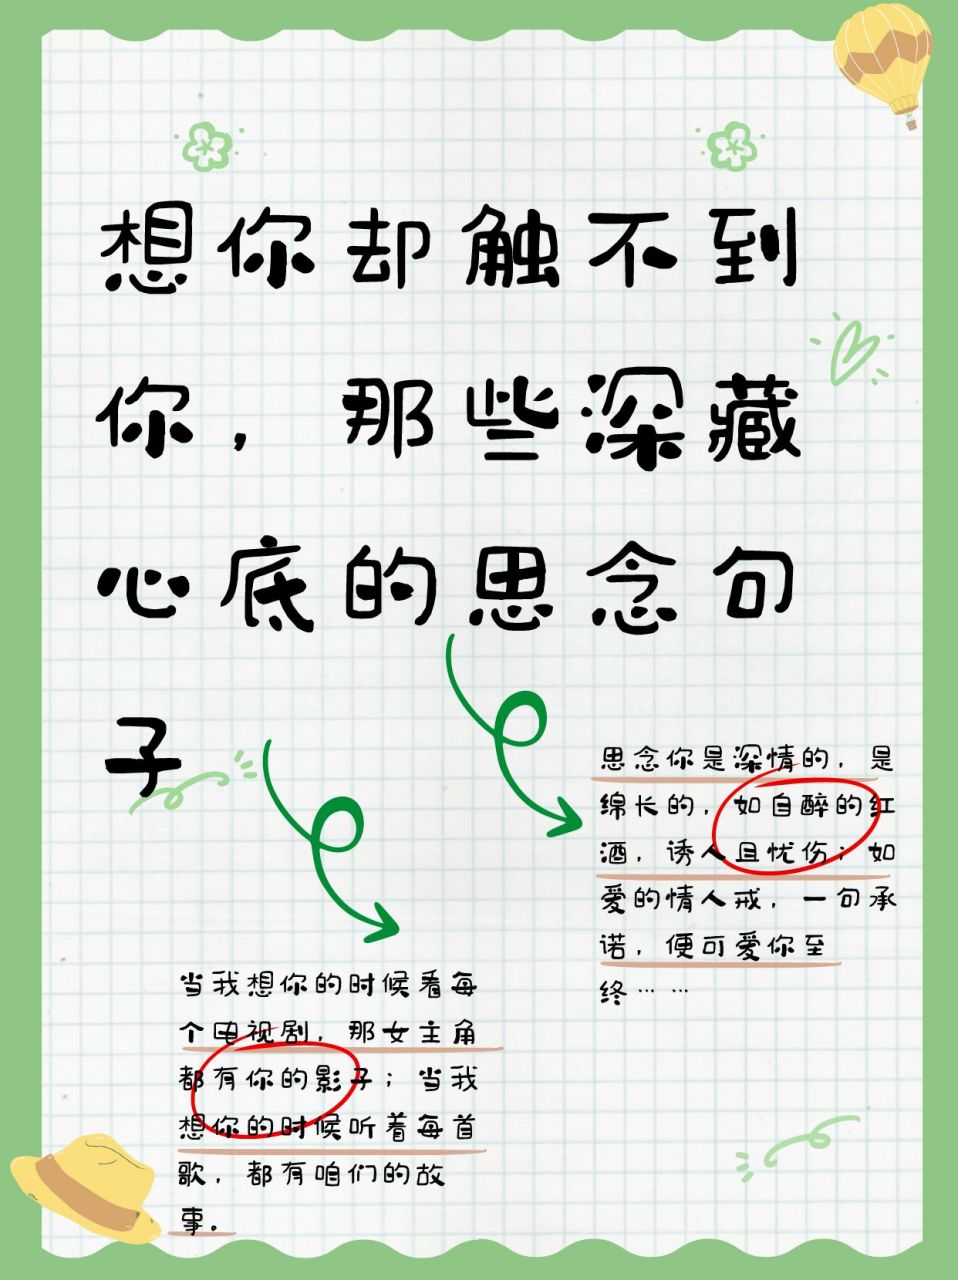 想你却触不到
你，那些深藏
心底的思念句
子
思念你是深情的，是
绵长的，如自醉的红
酒，诱人且忧伤；如
爱的情人戒，一句承
诺，便可爱你至
终……
当我想你的时候看每
个电视剧，那女主角
都有你的影子；当我
想你的时候听着每首
歌，都有咱们的故
事。